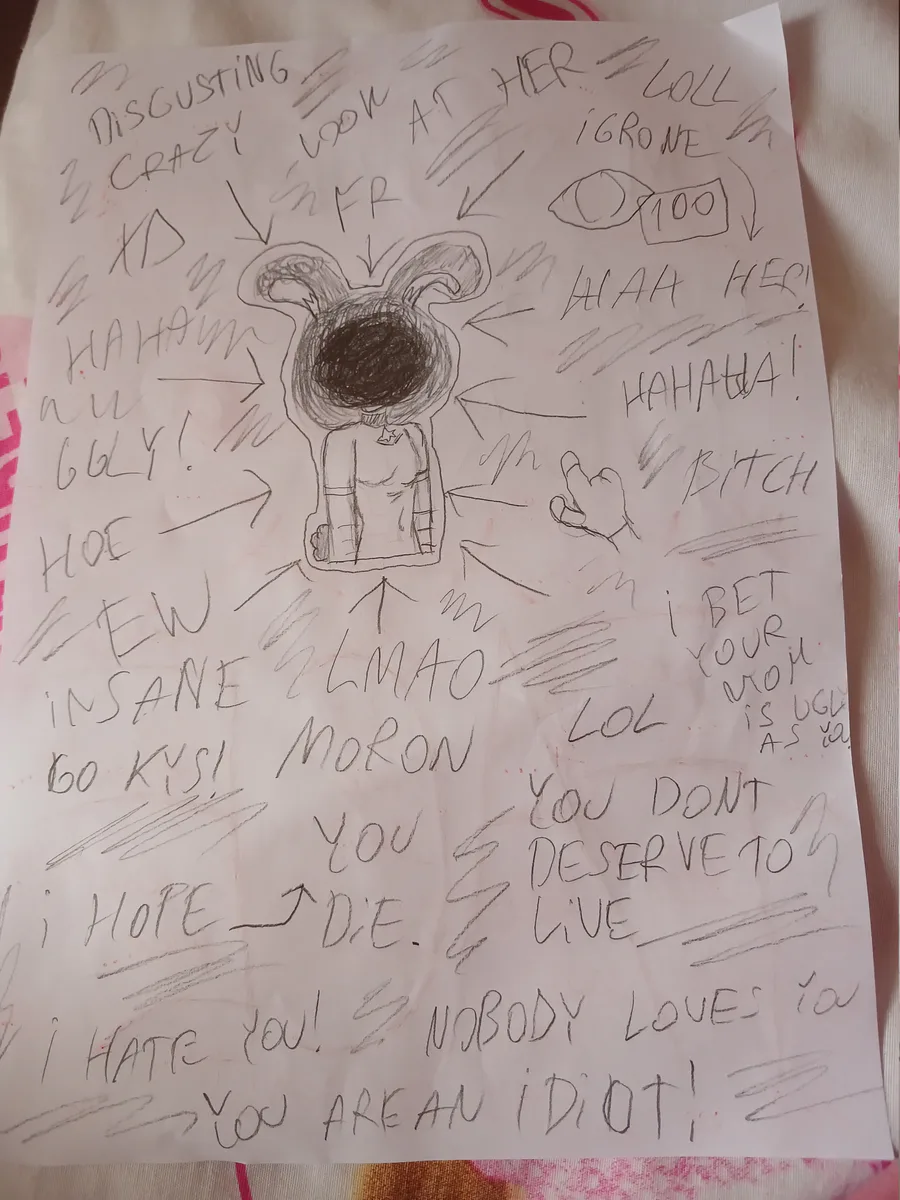 DISGUSTING
CRAZY
LOOK AT HER
LOLL
IGRONE
XD
FR
100
HAHA
HER!
HAHAHA!
UGLY!
BITCH
HOE
EW
I BET
YOUR
MOM
IS UGLY
AS YOU
INSANE
LMAO
LOL
GO KYS!
MORON
YOU DONT
DESERVE TO
LIVE
I HOPE
YOU
DIE.
I HATE YOU!
NOBODY LOVES YOU
YOU ARE AN IDIOT!